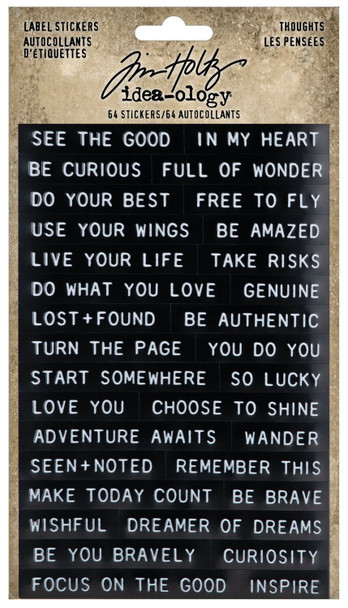 LABEL STICKERS
AUTOCOLLANTS
D'ÉTIQUETTES
THOUGHTS
LES PENSÉES
Tim Holtz
idea-ology®
64 STICKERS/64 AUTOCOLLANTS
SEE THE GOOD IN MY HEART
BE CURIOUS FULL OF WONDER
DO YOUR BEST FREE TO FLY
USE YOUR WINGS BE AMAZED
LIVE YOUR LIFE TAKE RISKS
DO WHAT YOU LOVE GENUINE
LOST+FOUND BE AUTHENTIC
TURN THE PAGE YOU DO YOU
START SOMEWHERE SO LUCKY
LOVE YOU CHOOSE TO SHINE
ADVENTURE AWAITS WANDER
SEEN+NOTED REMEMBER THIS
MAKE TODAY COUNT BE BRAVE
WISHFUL DREAMER OF DREAMS
BE YOU BRAVELY CURIOSITY
FOCUS ON THE GOOD INSPIRE